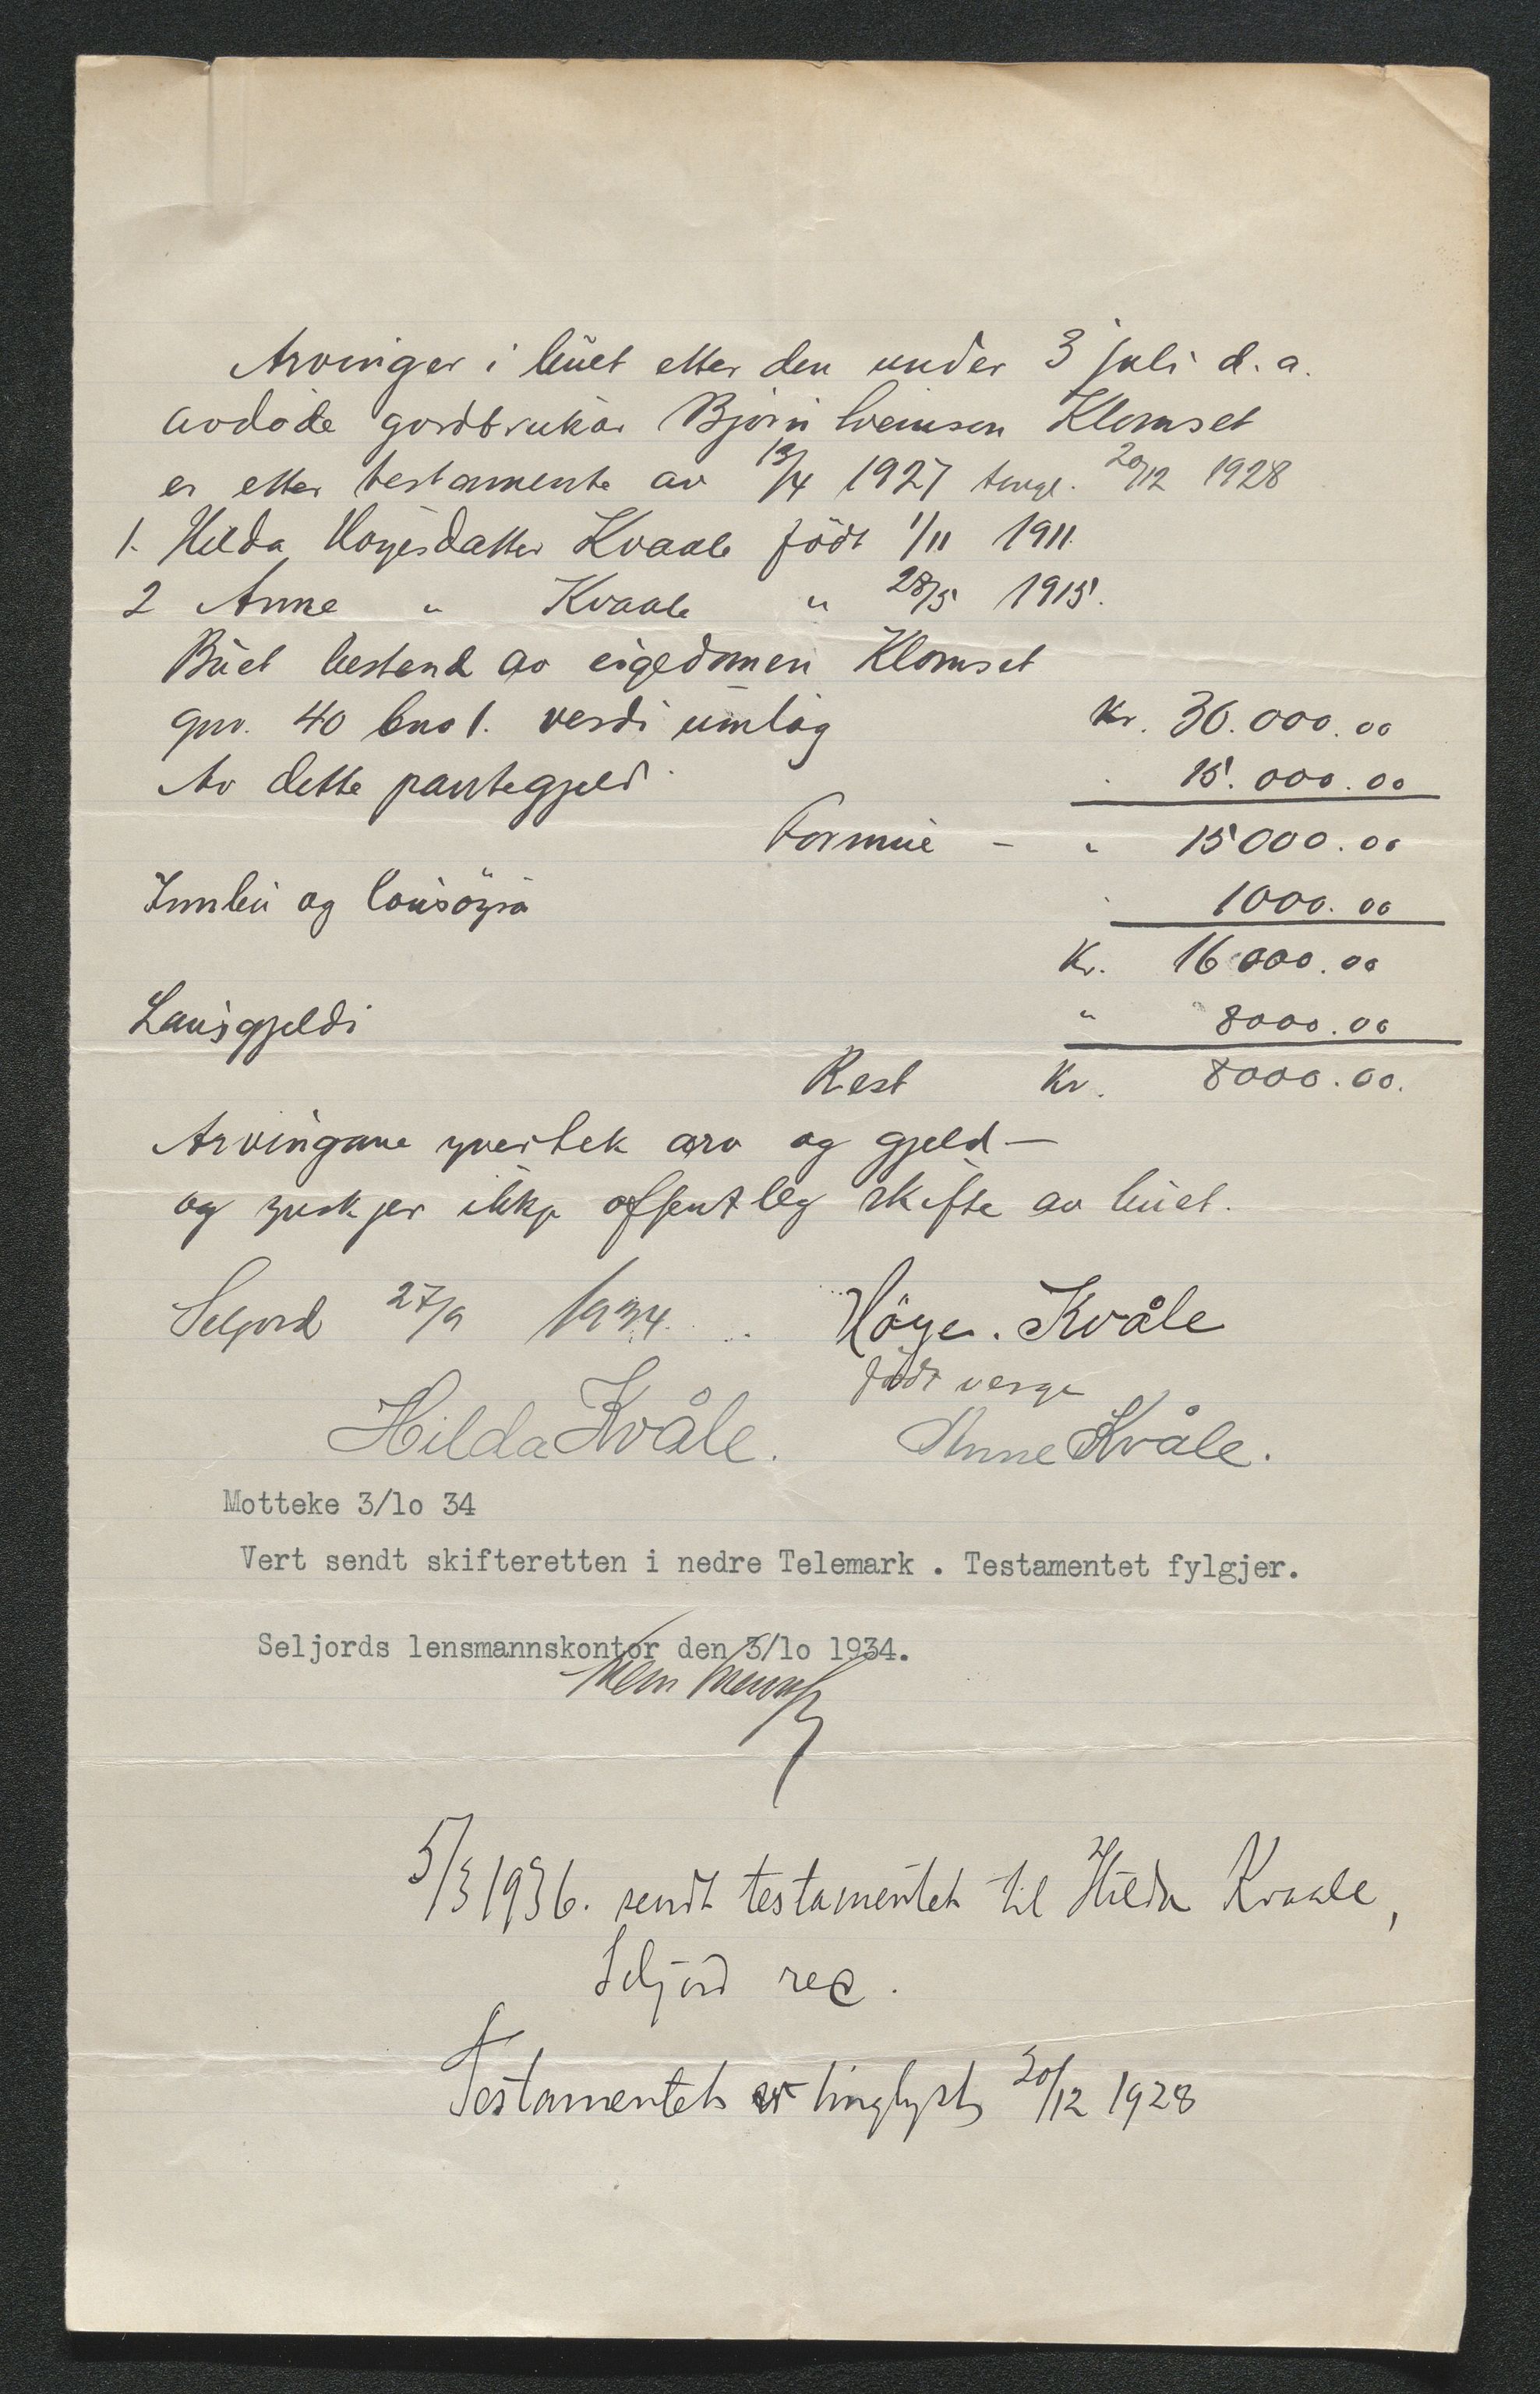 Arvinger i buet etter den under 3 juli d.a.
avdøde gordbrukar Bjørn Sveinson Klomset
er etter testamente av 13/4 1927 tingl. 20/12 1928
1. Hilda Høyesdatter Kvaale født 1/11 1911.
2 Anne " Kvaale " 28/5 1915.
Buet bestend av eigedomen Klomset
gnr. 40 bno 1. verdi umlag Kr. 30.000.00
Av dette pantegjeld 15.000.00
Formue - " 15000.00
Innbu og lausøyra 1000.00
Kr. 16000.00
Lausgjeldi " 8000.00
Rest Kr. 8000.00.
Arvingane yvertek arv og gjeld —
og ynskjer ikkje offentleg skifte av buet.
Seljord 27/9 1934. Höye. Kvåle
född verge
Hilda Kvåle. Anne Kvåle.
Motteke 3/lo 34
Vert sendt skifteretten i nedre Telemark . Testamentet fylgjer.
Seljords lensmannskontor den 3/lo 1934.
5/3 1936. sendt testamentet til Hilda Kvaale,
Seljord rec.
Testamentet er tinglyst 20/12 1928